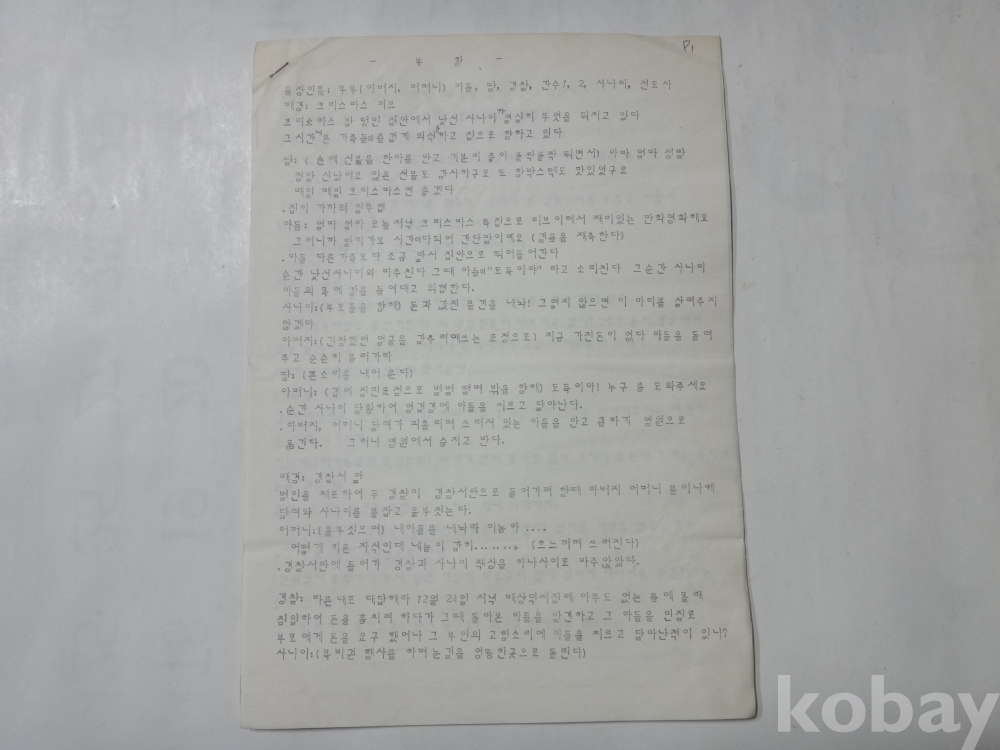 P1
- 부 활 -
등장인물: 부부(아버지, 어머니) 아들, 딸, 경찰, 간수1, 2, 사나이, 전도사
배경: 크리스마스 이브
크리스마스 밤 텅빈 집안에서 낯선 사나이가 열심히 무엇을 뒤지고 있다
그시간 가족들은 즐겁게 외식하고 집으로 향하고 있다
딸: ( 손에 선물을 한아름 안고 기분이 좋아 동작동작 뛰면서) 아빠 엄마 정말
정말 신났어요 많은 선물도 감사하구요 또 함박스텍도 맛있었구요
매일 매일 크리스마스면 좋겠다
.집이 가까워 질무렵
아들: 엄마 엄마 오늘저녁 크리스마스 특집으로 티브이에서 재미있는 만화영화해요
그러니까 빨리가요 시간이다되어 간단말이예요 (걸음을 재촉한다)
.아들 다른가족보다 조금 앞서 집안으로 뛰어들어간다
순간 낯선사나이와 마주친다 그때 아들이"도둑이야" 라고 소리친다 그순간 사나이
아들의 목에 칼을 들이대고 위협한다.
사나이:(부모들을 향해) 돈과 값진 물건을 내놔! 그렇지 않으면 이 아이를 살려주지
않겠다
아버지:(긴장했던 얼굴을 감추려애쓰는 표정으로) 지금 가진돈이 없다 아들을 돌려
주고 순순히 물러가라
딸: (큰소리를 내어 운다)
어머니: (겁에 질린표정으로 벌벌 떨며 밖을 향해) 도둑이야! 누구 좀 도와주세요
.순간 사나이 당황하여 얼결에 아들을 찌르고 달아난다.
.아버지, 어머니 달려가 피흘리며 쓰러져 있는 아들을 안고 급하게 병원으로
옮긴다. 그러나 병원에서 숨지고 만다.
배경: 경찰서 앞
범인을 체포하여 두 경찰이 경찰서안으로 들어가려 할때 아버지 어머니 불이나케
달려와 사나이를 붙잡고 울부짖는다.
어머니:(울부짖으며) 내아들을 내놔라 이놈아 ....
어떻게 키운 자식인데 네놈이 감히......., (흐느끼며 쓰러진다)
.경찰서안에 들어가 경찰과 사나이 책상을 하나사이로 마주앉았다.
경찰: 바른대로 대답해라 12월 24일 저녁 예상무시집에 아무도 없는 틈에 몰래
침입하여 돈을 훔치려 하다가 그때 돌아온 아들을 발견하고 그 아들을 인질로
부모에게 돈을 요구 했어나 그 부인의 고함소리에 아들을 찌르고 달아난적이 있나?
사나이:( 행사를 하며 눈길을 엉뚱한곳으로 돌린다)
kobay